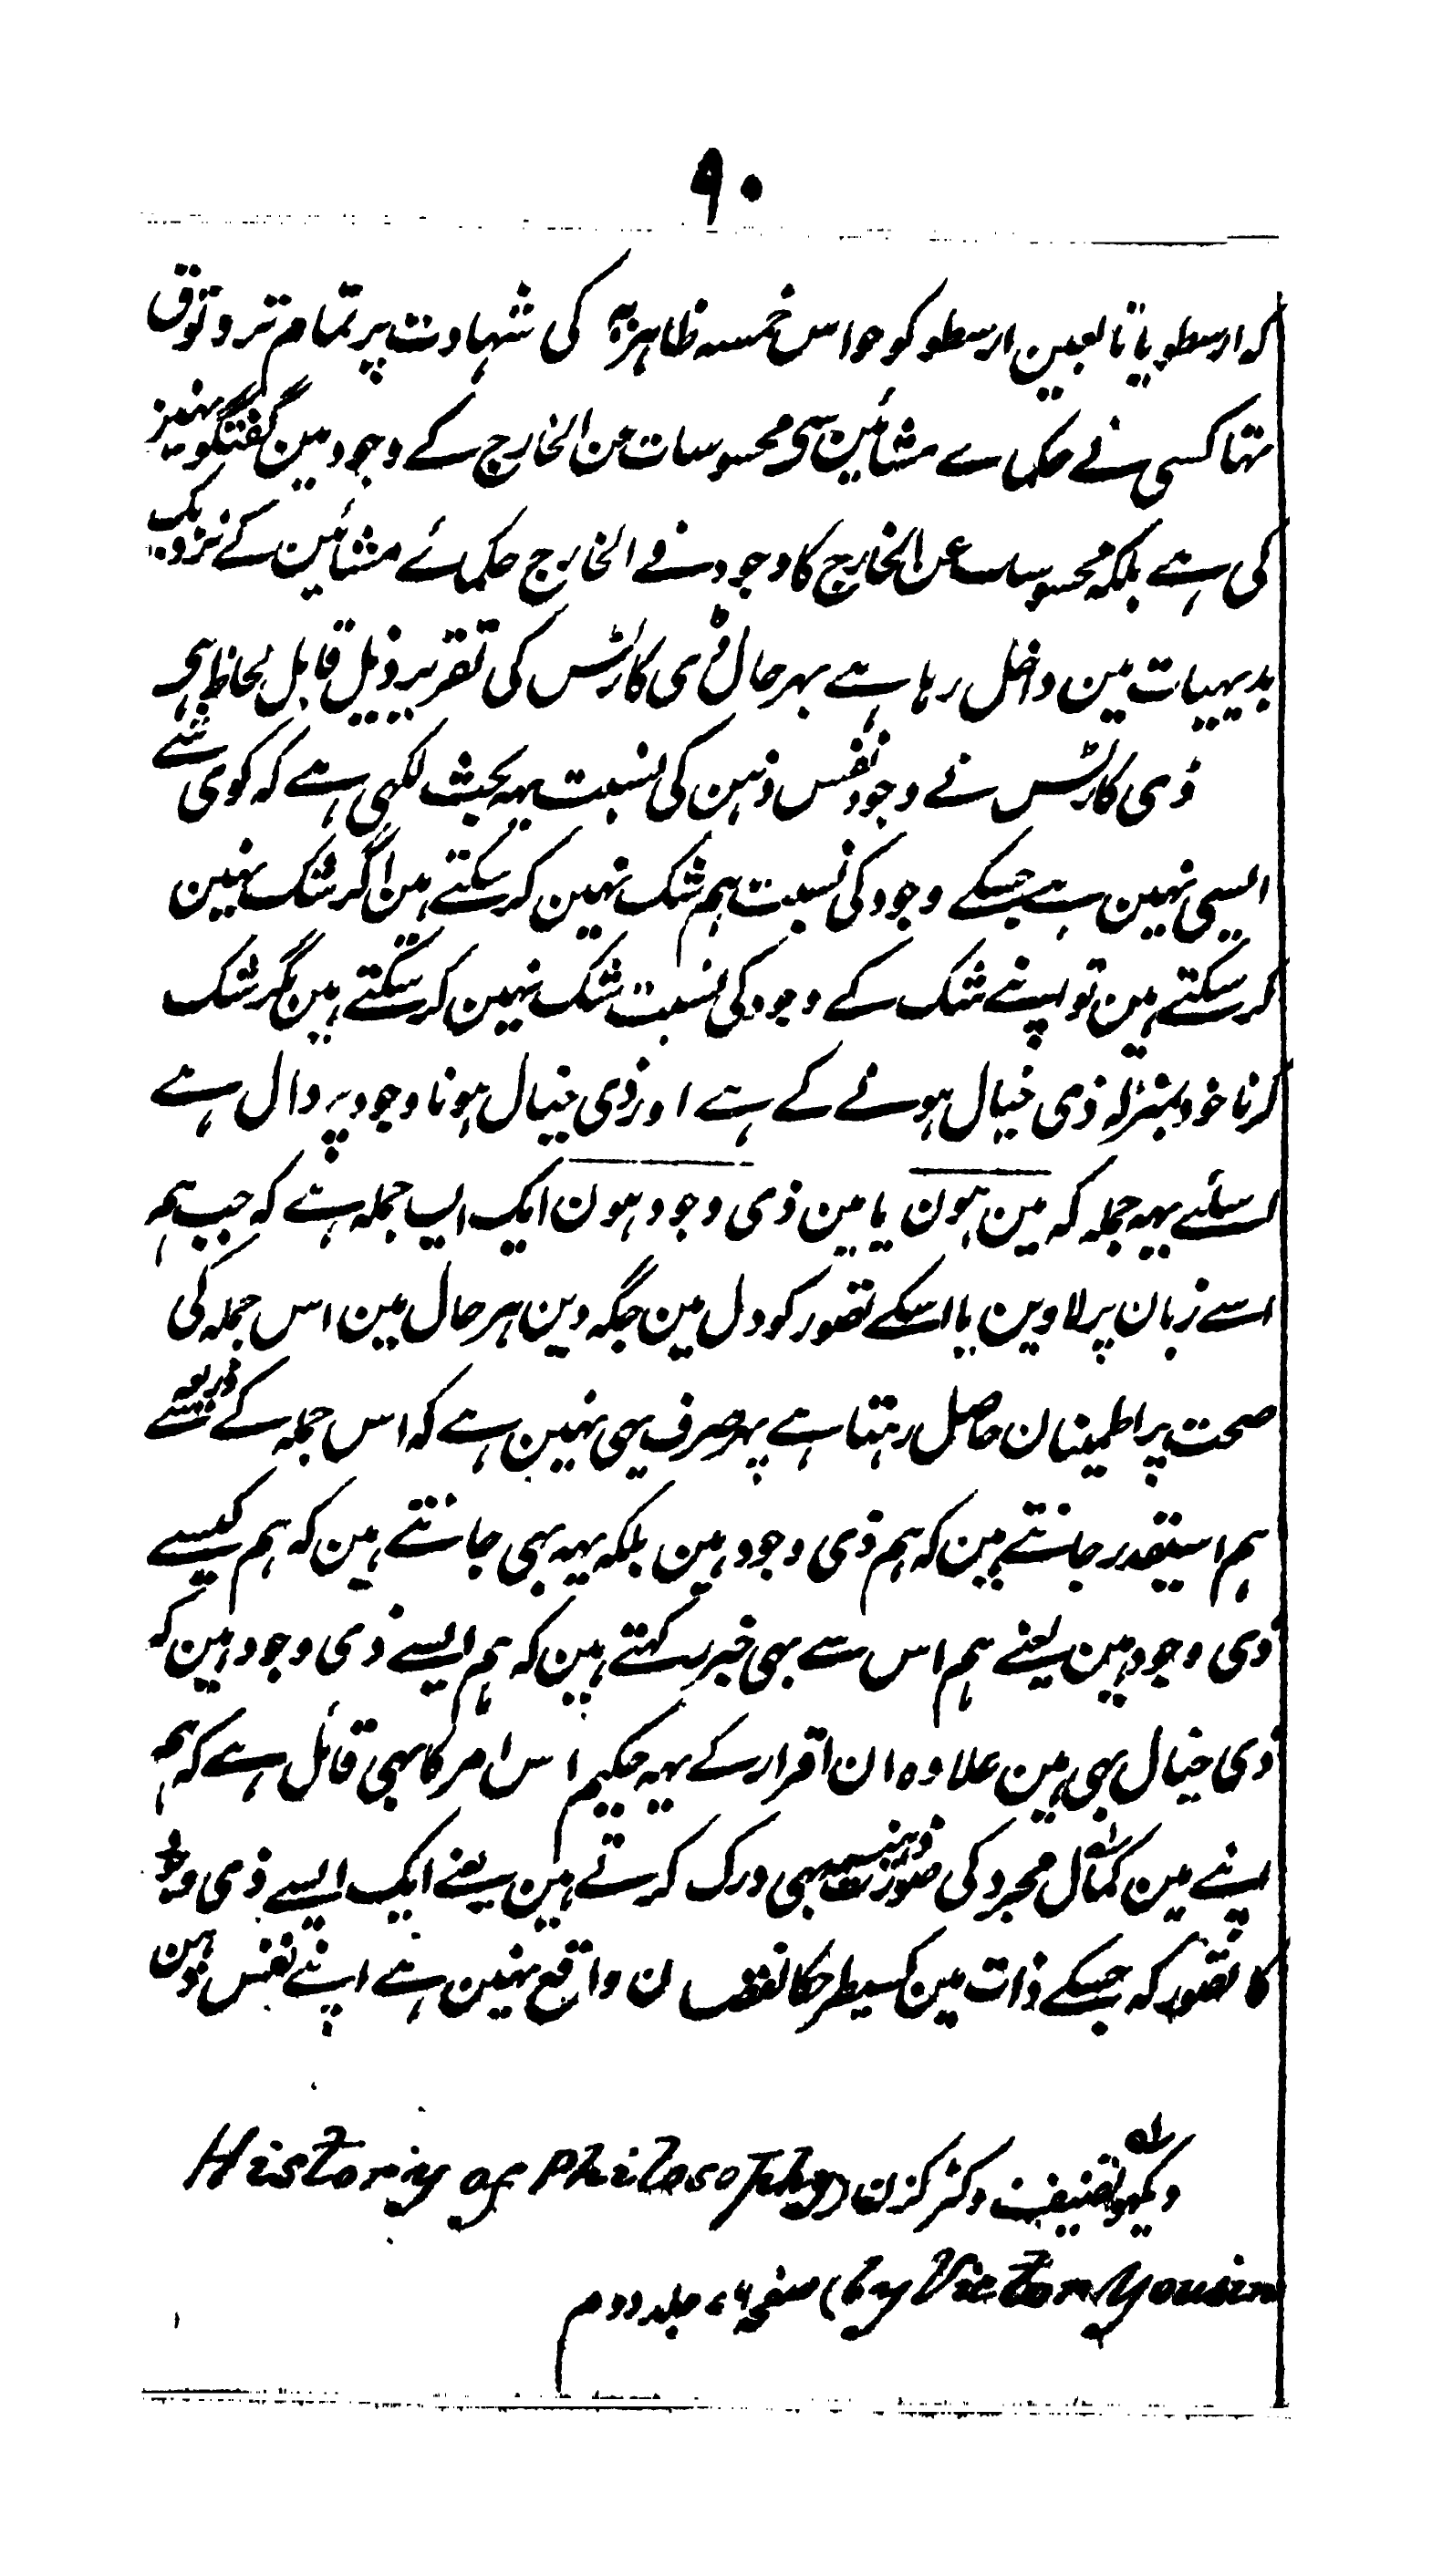 ۹۰
کہ ارسطو یا تابعین ارسطو کو حواس خمسہ ظاہرہ کی شہادت پر تمام تر وثوق
تہا کسی نے حکماے مشائین سے محسوسات عن الخارج کے وجود مین گفتگو نہین
کی ہے بلکہ محسوسات عن الخارج کا وجود فے الخارج حکمائے مشائین کے نزدیک
بدیہیات مین داخل رہا ہے بہر حال ڈی کارٹس کی تقریر ذیل قابل لحاظ ہے
ڈی کارٹس نے وجود نفس ذہن کی نسبت یہہ بحث لکہی ہے کہ کوی شے
ایسی نہین ہے جسکے وجود کی نسبت ہم شک نہین کرسکتے ہین اگر شک نہین
کرسکتے ہین تو اپنے شک کے وجود کی نسبت شک نہین کرسکتے ہین مگر شک
کرنا خود بمنزلہ ذی خیال ہونے کے ہے اور ذی خیال ہونا وجود پر دال ہے
اسلئے یہہ جملہ کہ مین ہون یا مین ذی وجود ہون ایک ایسا جملہ ہے کہ جب ہم
اسے زبان پر لاوین یا اسکے تصور کو دل مین جگہ دین ہر حال مین اس جملہ کی
صحت پر اطمینان حاصل رہتا ہے پہر صرف یہی نہین ہے کہ اس جملہ کے ذریعہ سے
ہم اسیقدر جانتے ہین کہ ہم ذی وجود ہین بلکہ یہہ بہی جانتے ہین کہ ہم کیسے
ذی وجود ہین یعنے ہم اس سے بہی خبر رکہتے ہین کہ ہم ایسے ذی وجود ہین کہ
ذی خیال بہی ہین علاوہ ان اقرار کے یہہ حکیم اس امر کا بہی قائل ہے کہ ہم
اپنے مین کمال مجرد کی صورت ذہنیہ بہی درک کرتے ہین یعنے ایک ایسے ذی وجود
کا تصور کہ جسکے ذات مین کسیطرحکا نقصان واقع نہین ہے اپنے نفس ذہن
لہ دیکہو تصنیف وکٹر کزن (History of Philosophy
by Victor Yousin) صفحہ جلد دوم